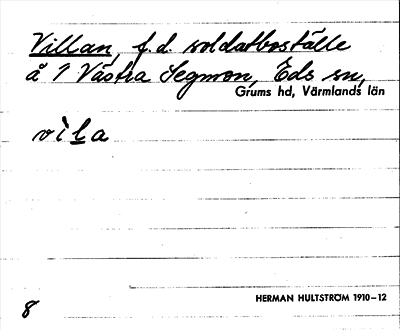 Villan, f.d. soldatboställe
å 1 Västra Segmon, Eds sn,
Grums hd, Värmlands län
vìLa
8
HERMAN HULTSTRÖM 1910–12